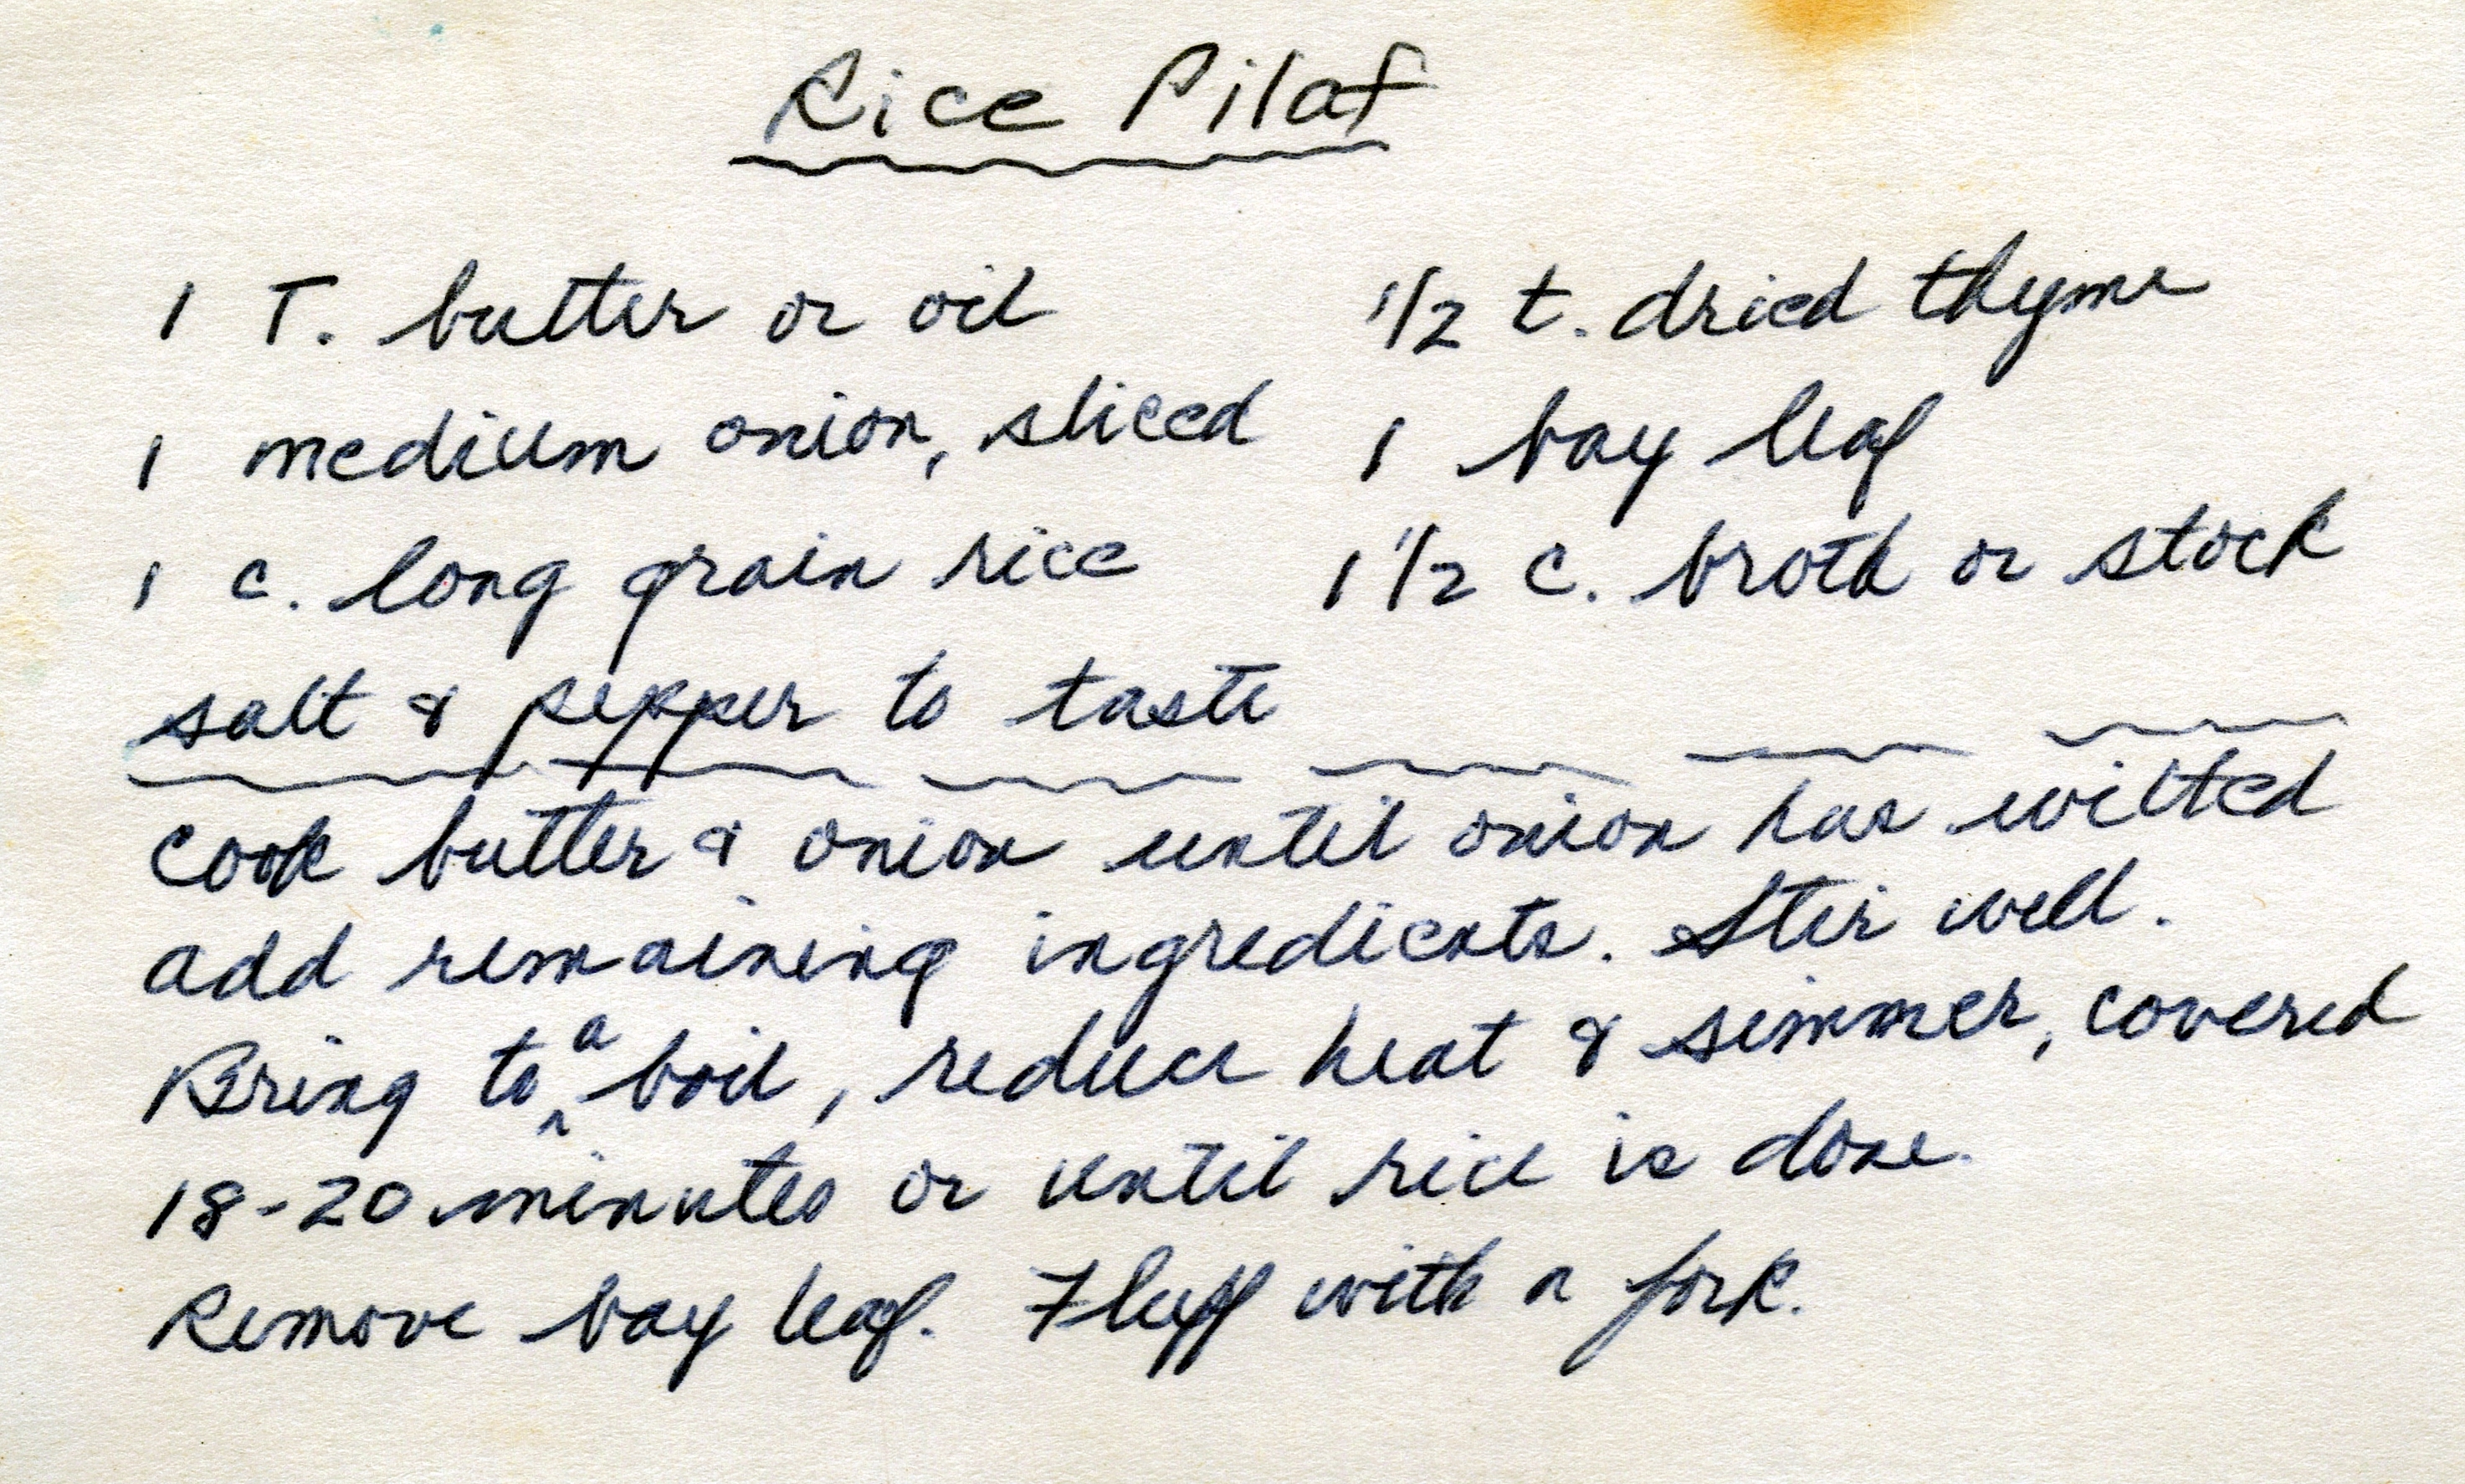 Rice Pilaf
1 T. butter or oil
1 medium onion, sliced
1 c. long grain rice
salt & pepper to taste
1/2 t. dried thyme
1 bay leaf
1 1/2 c. broth or stock
cook butter & onion until onion has wilted
add remaining ingredients. Stir well.
Bring to a boil, reduce heat & simmer, covered
18-20 minutes or until rice is done.
Remove bay leaf. Fluff with a fork.